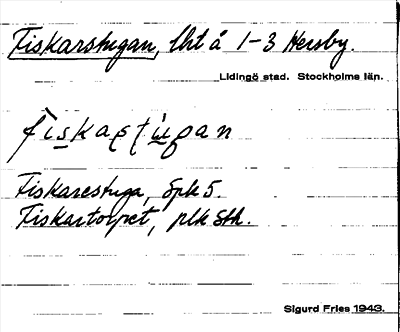 Fiskarstugan, lht å 1-3 Hersby.
Lidingö stad. Stockholms län.
fiskaṣtu̇gan
Fiskarestuga, Spk 5.
Fiskartorpet, plk Sth.
Sigurd Fries 1943.